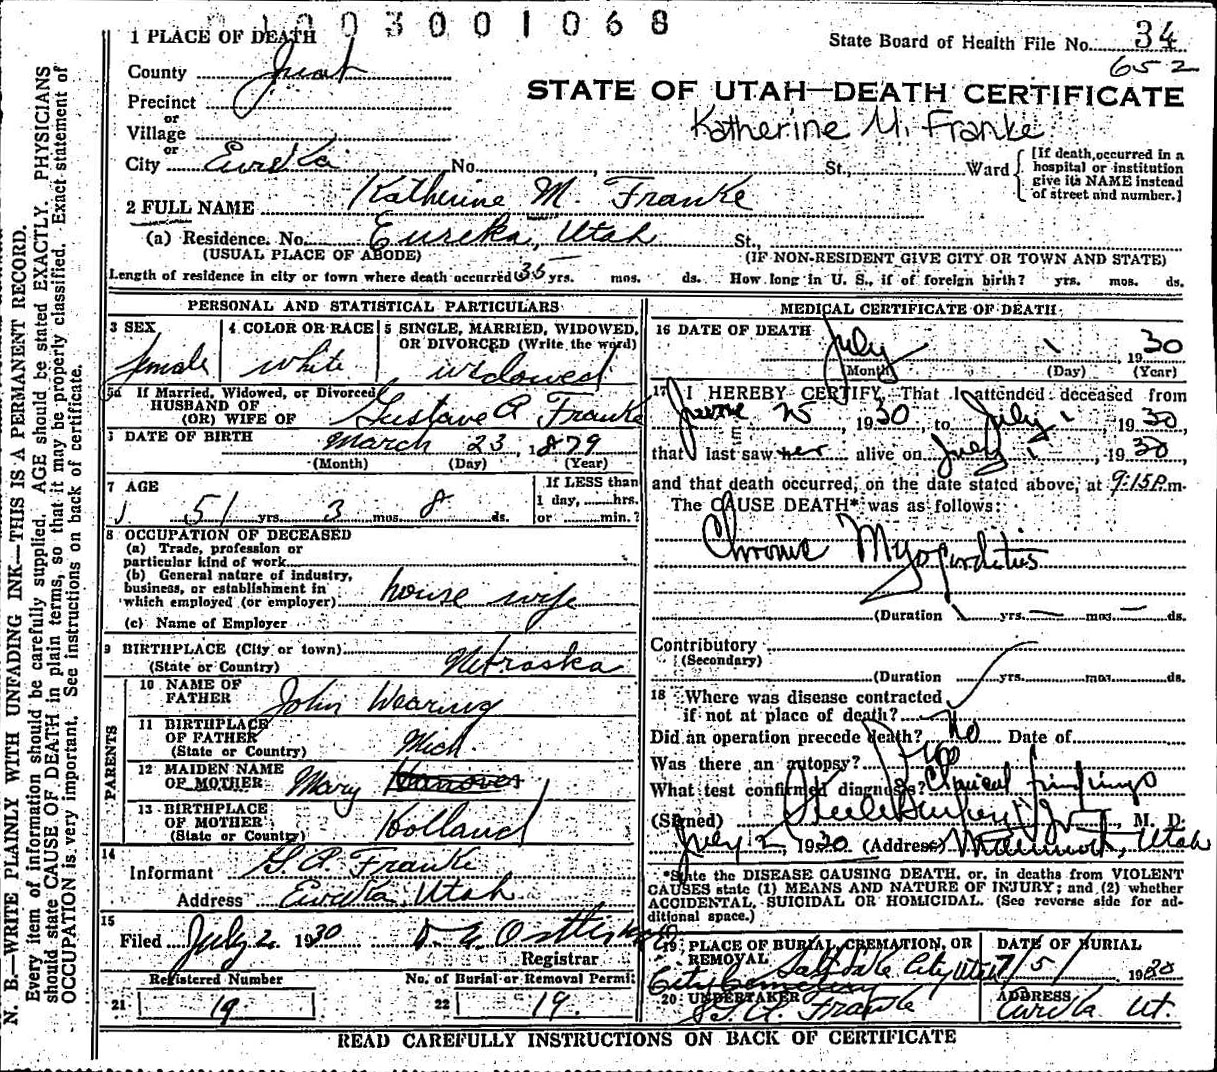 003001068
1 PLACE OF DEATH
State Board of Health File No. 34
652
County Juab
Precinct
or
Village
or
City Eureka No. St., Ward
STATE OF UTAH—DEATH CERTIFICATE
Katherine M. Franke
[If death occurred in a hospital or institution give its NAME instead of street and number.]
2 FULL NAME Katherine M. Franke
(a) Residence. No. Eureka, Utah St.,
(USUAL PLACE OF ABODE) (IF NON-RESIDENT GIVE CITY OR TOWN AND STATE)
Length of residence in city or town where death occurred 35 yrs. mos. ds. How long in U. S., if of foreign birth? yrs. mos. ds.
PERSONAL AND STATISTICAL PARTICULARS
3 SEX
female
4 COLOR OR RACE
white
5 SINGLE, MARRIED, WIDOWED, OR DIVORCED (Write the word)
widowed
5a If Married, Widowed, or Divorced
HUSBAND OF
(OR) WIFE OF Gustave A Franke
6 DATE OF BIRTH March 23, 1879
(Month) (Day) (Year)
7 AGE
51 yrs. 3 mos. 8 ds.
If LESS than
1 day, hrs.
or min.?
8 OCCUPATION OF DECEASED
(a) Trade, profession or
particular kind of work
(b) General nature of industry,
business, or establishment in
which employed (or employer) house wife
(c) Name of Employer
9 BIRTHPLACE (City or town)
(State or Country) Nebraska
PARENTS
10 NAME OF
FATHER John Wearing
11 BIRTHPLACE
OF FATHER
(State or Country) Mich.
12 MAIDEN NAME
OF MOTHER Mary Hanover
13 BIRTHPLACE
OF MOTHER
(State or Country) Holland
14
Informant G. A. Franke
Address Eureka, Utah
15
Filed July 2, 1930
Registrar
Registered Number
No. of Burial or Removal Permit
21 19
22 19.
MEDICAL CERTIFICATE OF DEATH
16 DATE OF DEATH
July 1 1930
(Month) (Day) (Year)
17 I HEREBY CERTIFY, That I attended deceased from
June 25, 1930, to July 1, 1930,
that I last saw her alive on July 1, 1930,
and that death occurred, on the date stated above, at 9:15 P.m.
The CAUSE DEATH* was as follows:
Chronic Myocarditis
(Duration 1 yrs. — mos. — ds.
Contributory
(Secondary)
(Duration yrs. mos. ds.
18 Where was disease contracted
if not at place of death?
Did an operation precede death? No Date of
Was there an autopsy? No
What test confirmed diagnosis? Clinical findings
(Signed) M. D.
July 2, 1930 (Address) Mammoth, Utah
*State the DISEASE CAUSING DEATH, or, in deaths from VIOLENT
CAUSES state (1) MEANS AND NATURE OF INJURY; and (2) whether
ACCIDENTAL, SUICIDAL OR HOMICIDAL. (See reverse side for ad-
ditional space.)
19 PLACE OF BURIAL, CREMATION, OR
REMOVAL Salt Lake City Utah
City Cemetery
DATE OF BURIAL
7/5/ 1930
20 UNDERTAKER
G. A. Franke
ADDRESS
Eureka Ut.
READ CAREFULLY INSTRUCTIONS ON BACK OF CERTIFICATE
N. B.—WRITE PLAINLY WITH UNFADING INK—THIS IS A PERMANENT RECORD.
Every item of information should be carefully supplied. AGE should be stated EXACTLY. PHYSICIANS
should state CAUSE OF DEATH in plain terms, so that it may be properly classified. Exact statement of
OCCUPATION is very important. See instructions on back of certificate.